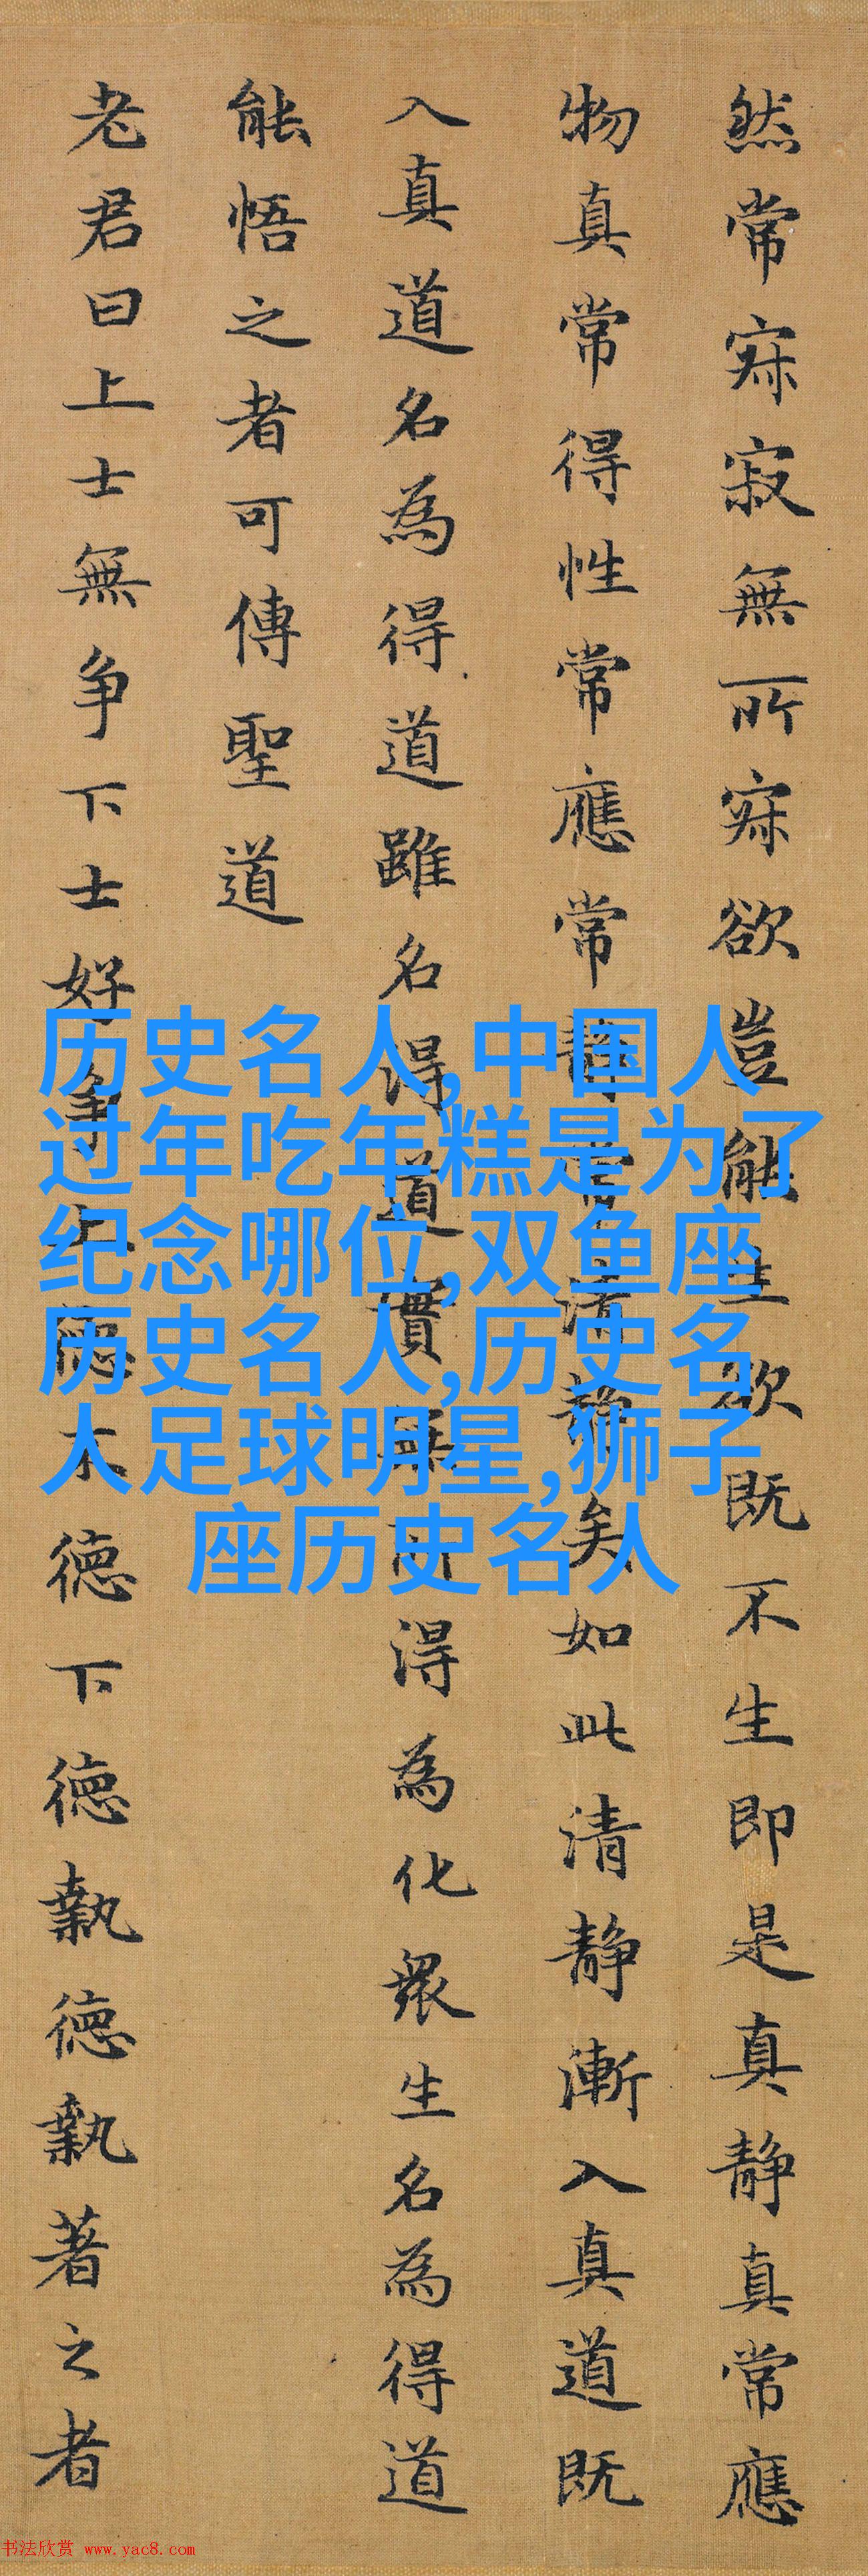 然常寂寂無所寂欲豈能生欲既不生即是真静真常應
物真常得性常應常静常清静矣如此清静漸入真道既
入真道名為得道雖名得道實無所得為化衆生名為得道
能悟之者可傳聖道
老君曰上士無争下士好争上德不德下德執德執著之者
历史名人,中国人
过年吃年糕是为了
纪念哪位,双鱼座
历史名人,历史名
人足球明星,狮子
座历史名人
书法欣赏 www.yac8.com